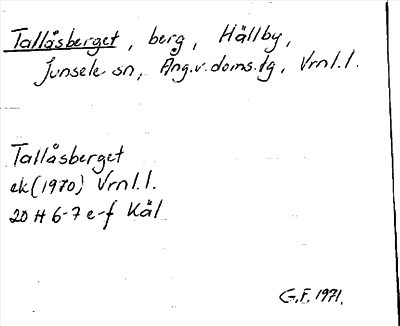 Tallåsberget, berg, Hällby,
Junsele sn, Ång.v.doms.lg, Vrnl.l.
Tallåsberget
ek (1970) Vrnl.l.
20 H 6-7 e-f Käl
G.F. 1971.